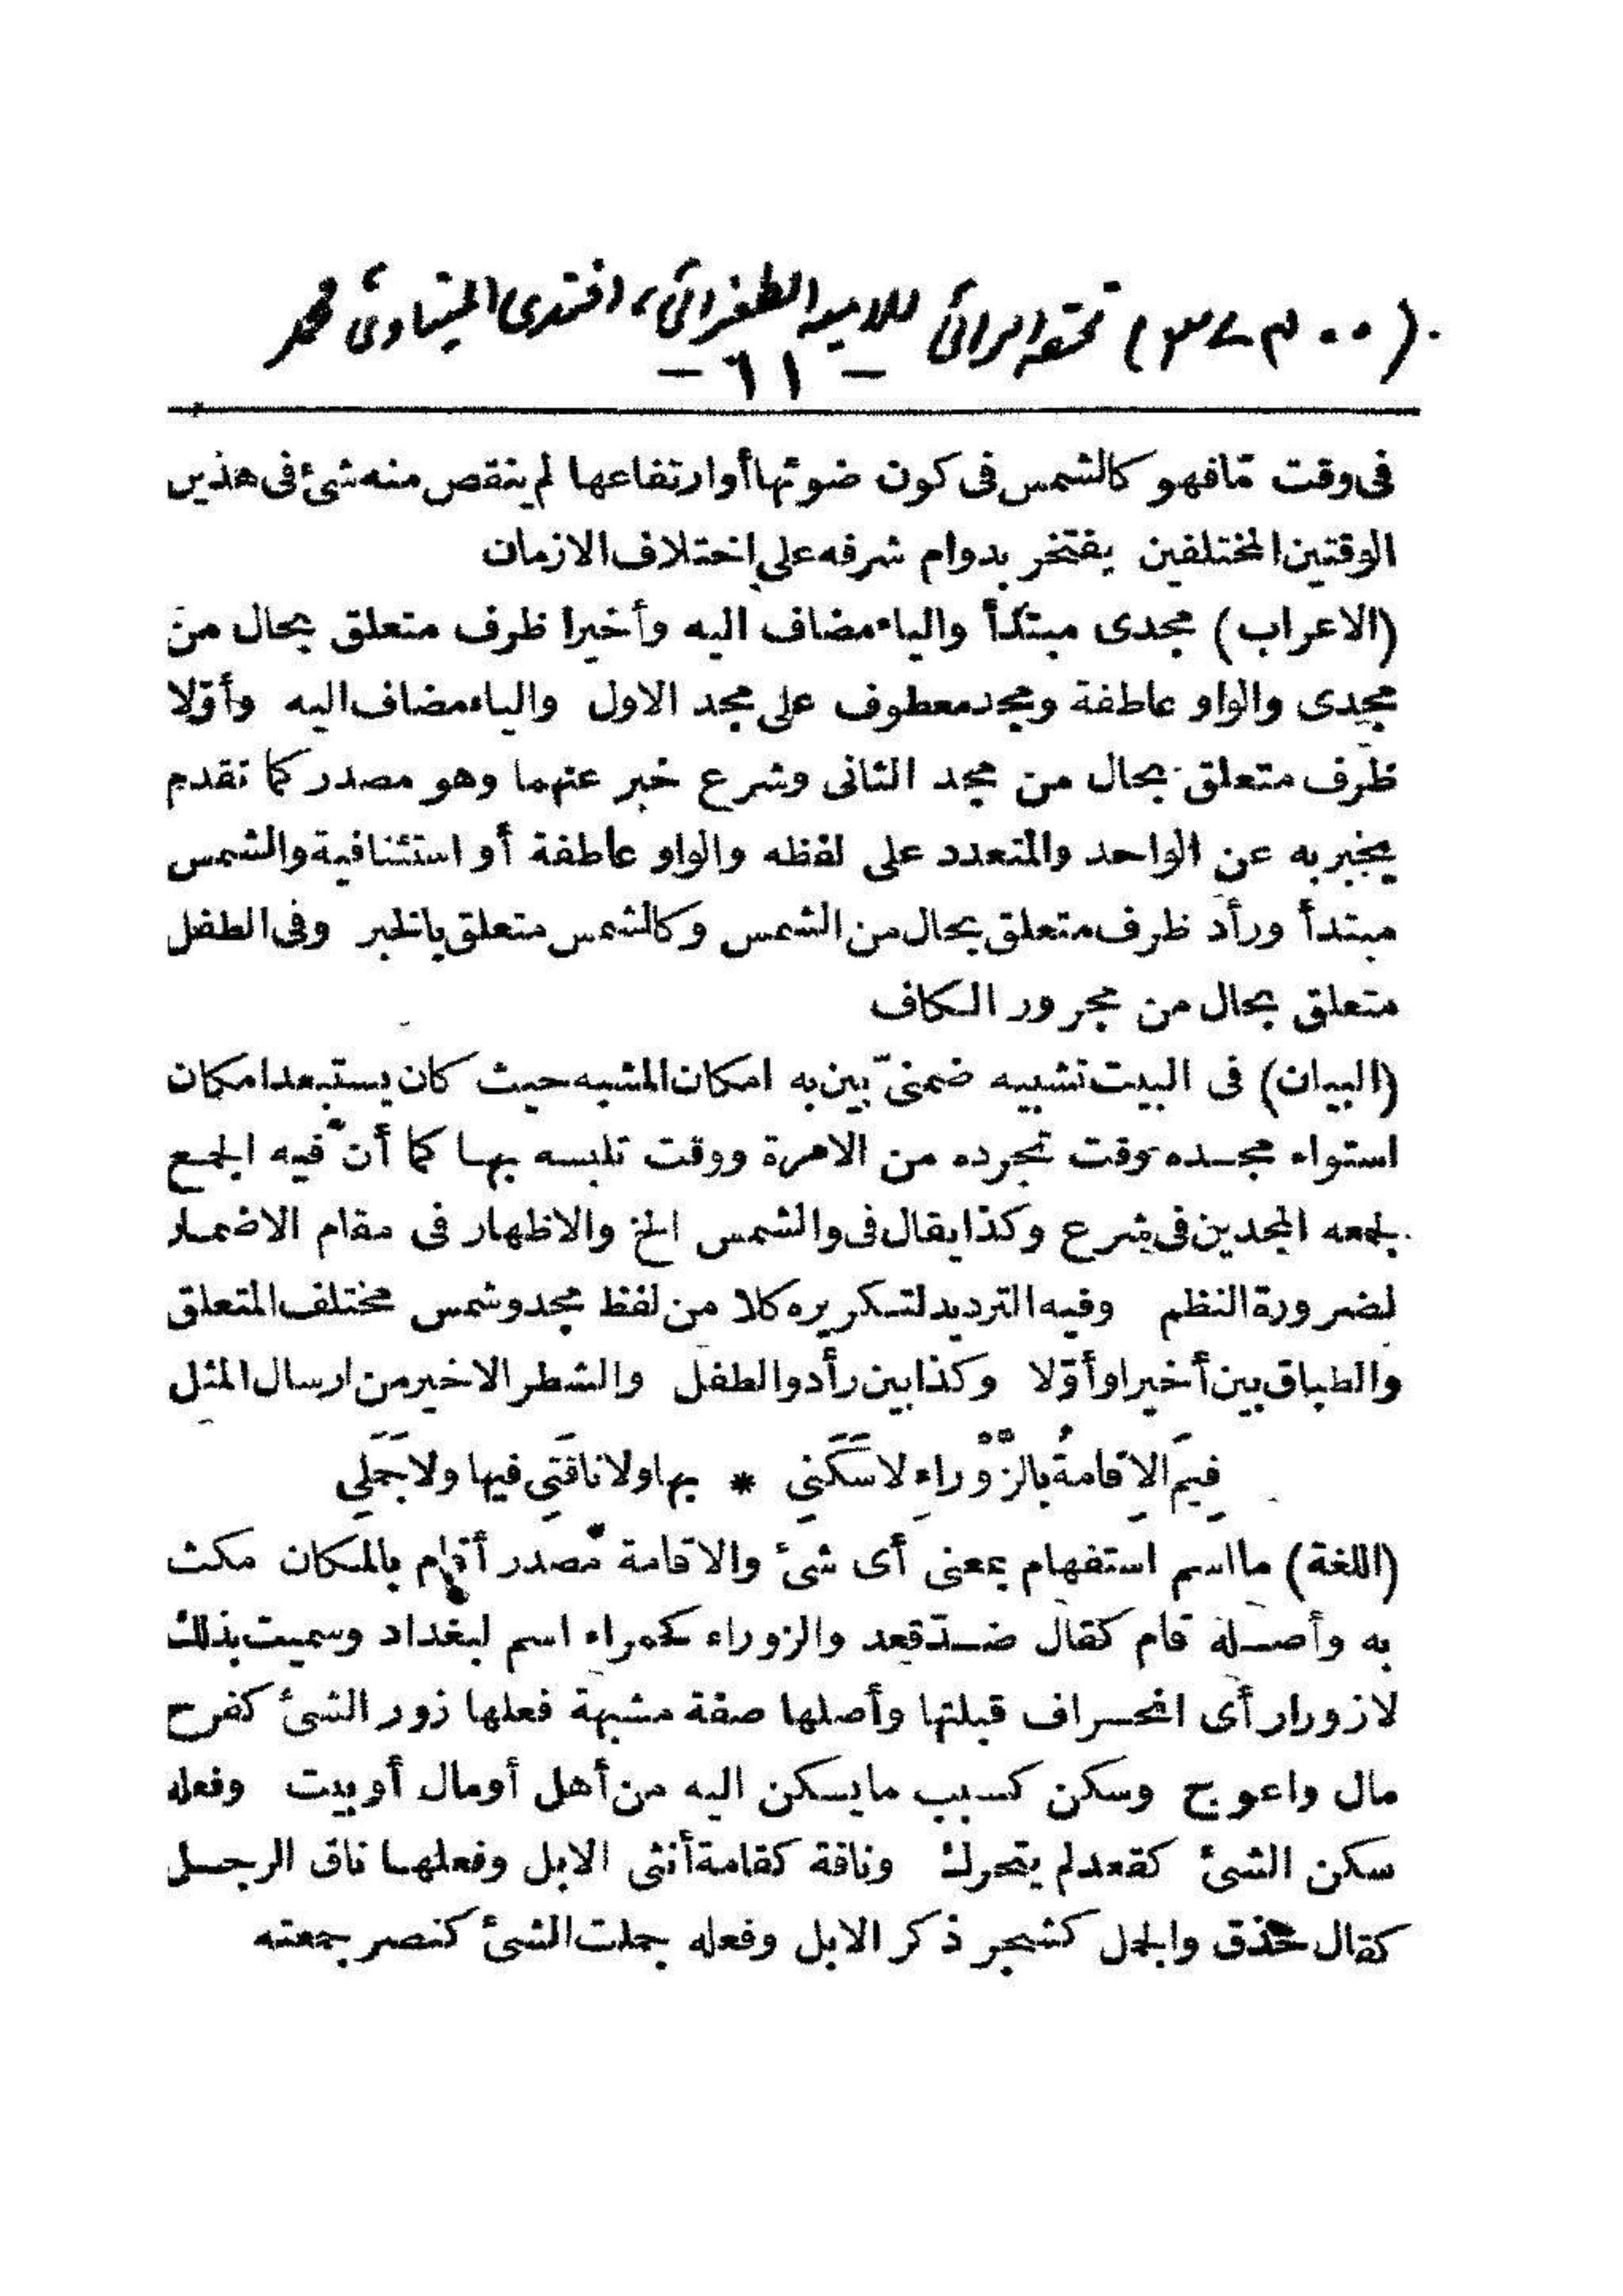 تحفة الرائى للامية الطغرائى، افندى المنياوى محمد
- ٦١ -
فى وقت تمافهو كالشمس فى كون ضوئها أوارتفاعها لم ينقص منه شئ فى هذين
الوقتين المختلفين يفتخر بدوام شرفه على اختلاف الازمان
(الاعراب) مجدى مبتدأ والياء مضاف اليه وأخيرا ظرف متعلق بحال من
مجدى والواو عاطفة ومجد معطوف على مجد الاول والياء مضاف اليه وأوّلا
ظرف متعلق بحال من مجد الثانى وشرع خبر عنهما وهو مصدر كما تقدم
يخبر به عن الواحد والمتعدد على لفظه والواو عاطفة أو استئنافية والشمس
مبتدأ ورأد ظرف متعلق بحال من الشمس وكالشمس متعلق بالخبر وفى الطفل
متعلق بحال من مجرور الكاف
(البيان) فى البيت تشبيه ضمنىّ بين به امكان المشبه حيث كان يستبعد امكان
استواء مجده وقت تجرده من الامرة ووقت تلبسه بها كما أن فيه الجمع
لجمعه المجدين فى شرع وكذا يقال فى والشمس الخ والاظهار فى مقام الاضمار
لضرورة النظم وفيه الترديد لتكريره كلا من لفظ مجد وشمس مختلف المتعلق
والطباق بين أخيرا وأوّلا وكذا بين رأد والطفل والشطر الاخير من ارسال المثل
فِيمَ الإِقامةُ بالزَّوْراءِ لاسَكَنِي * بها ولا ناقَتِي فيها ولا جَمَلِي
(اللغة) ما اسم استفهام بمعنى أى شئ والاقامة مصدر أقام بالمكان مكث
به وأصله قام كقال ضدّ قعد والزوراء كحمراء اسم لبغداد وسميت بذلك
لازورار أى انحراف قبلتها وأصلها صفة مشبهة فعلها زور الشئ كفرح
مال واعوج وسكن كسبب مايسكن اليه من أهل أومال أو بيت وفعله
سكن الشئ كقعد لم يتحرك وناقة كقامة أنثى الابل وفعلها ناق الرجل
كقال حذق والجمل كشجر ذكر الابل وفعله جملت الشئ كنصر جمعته